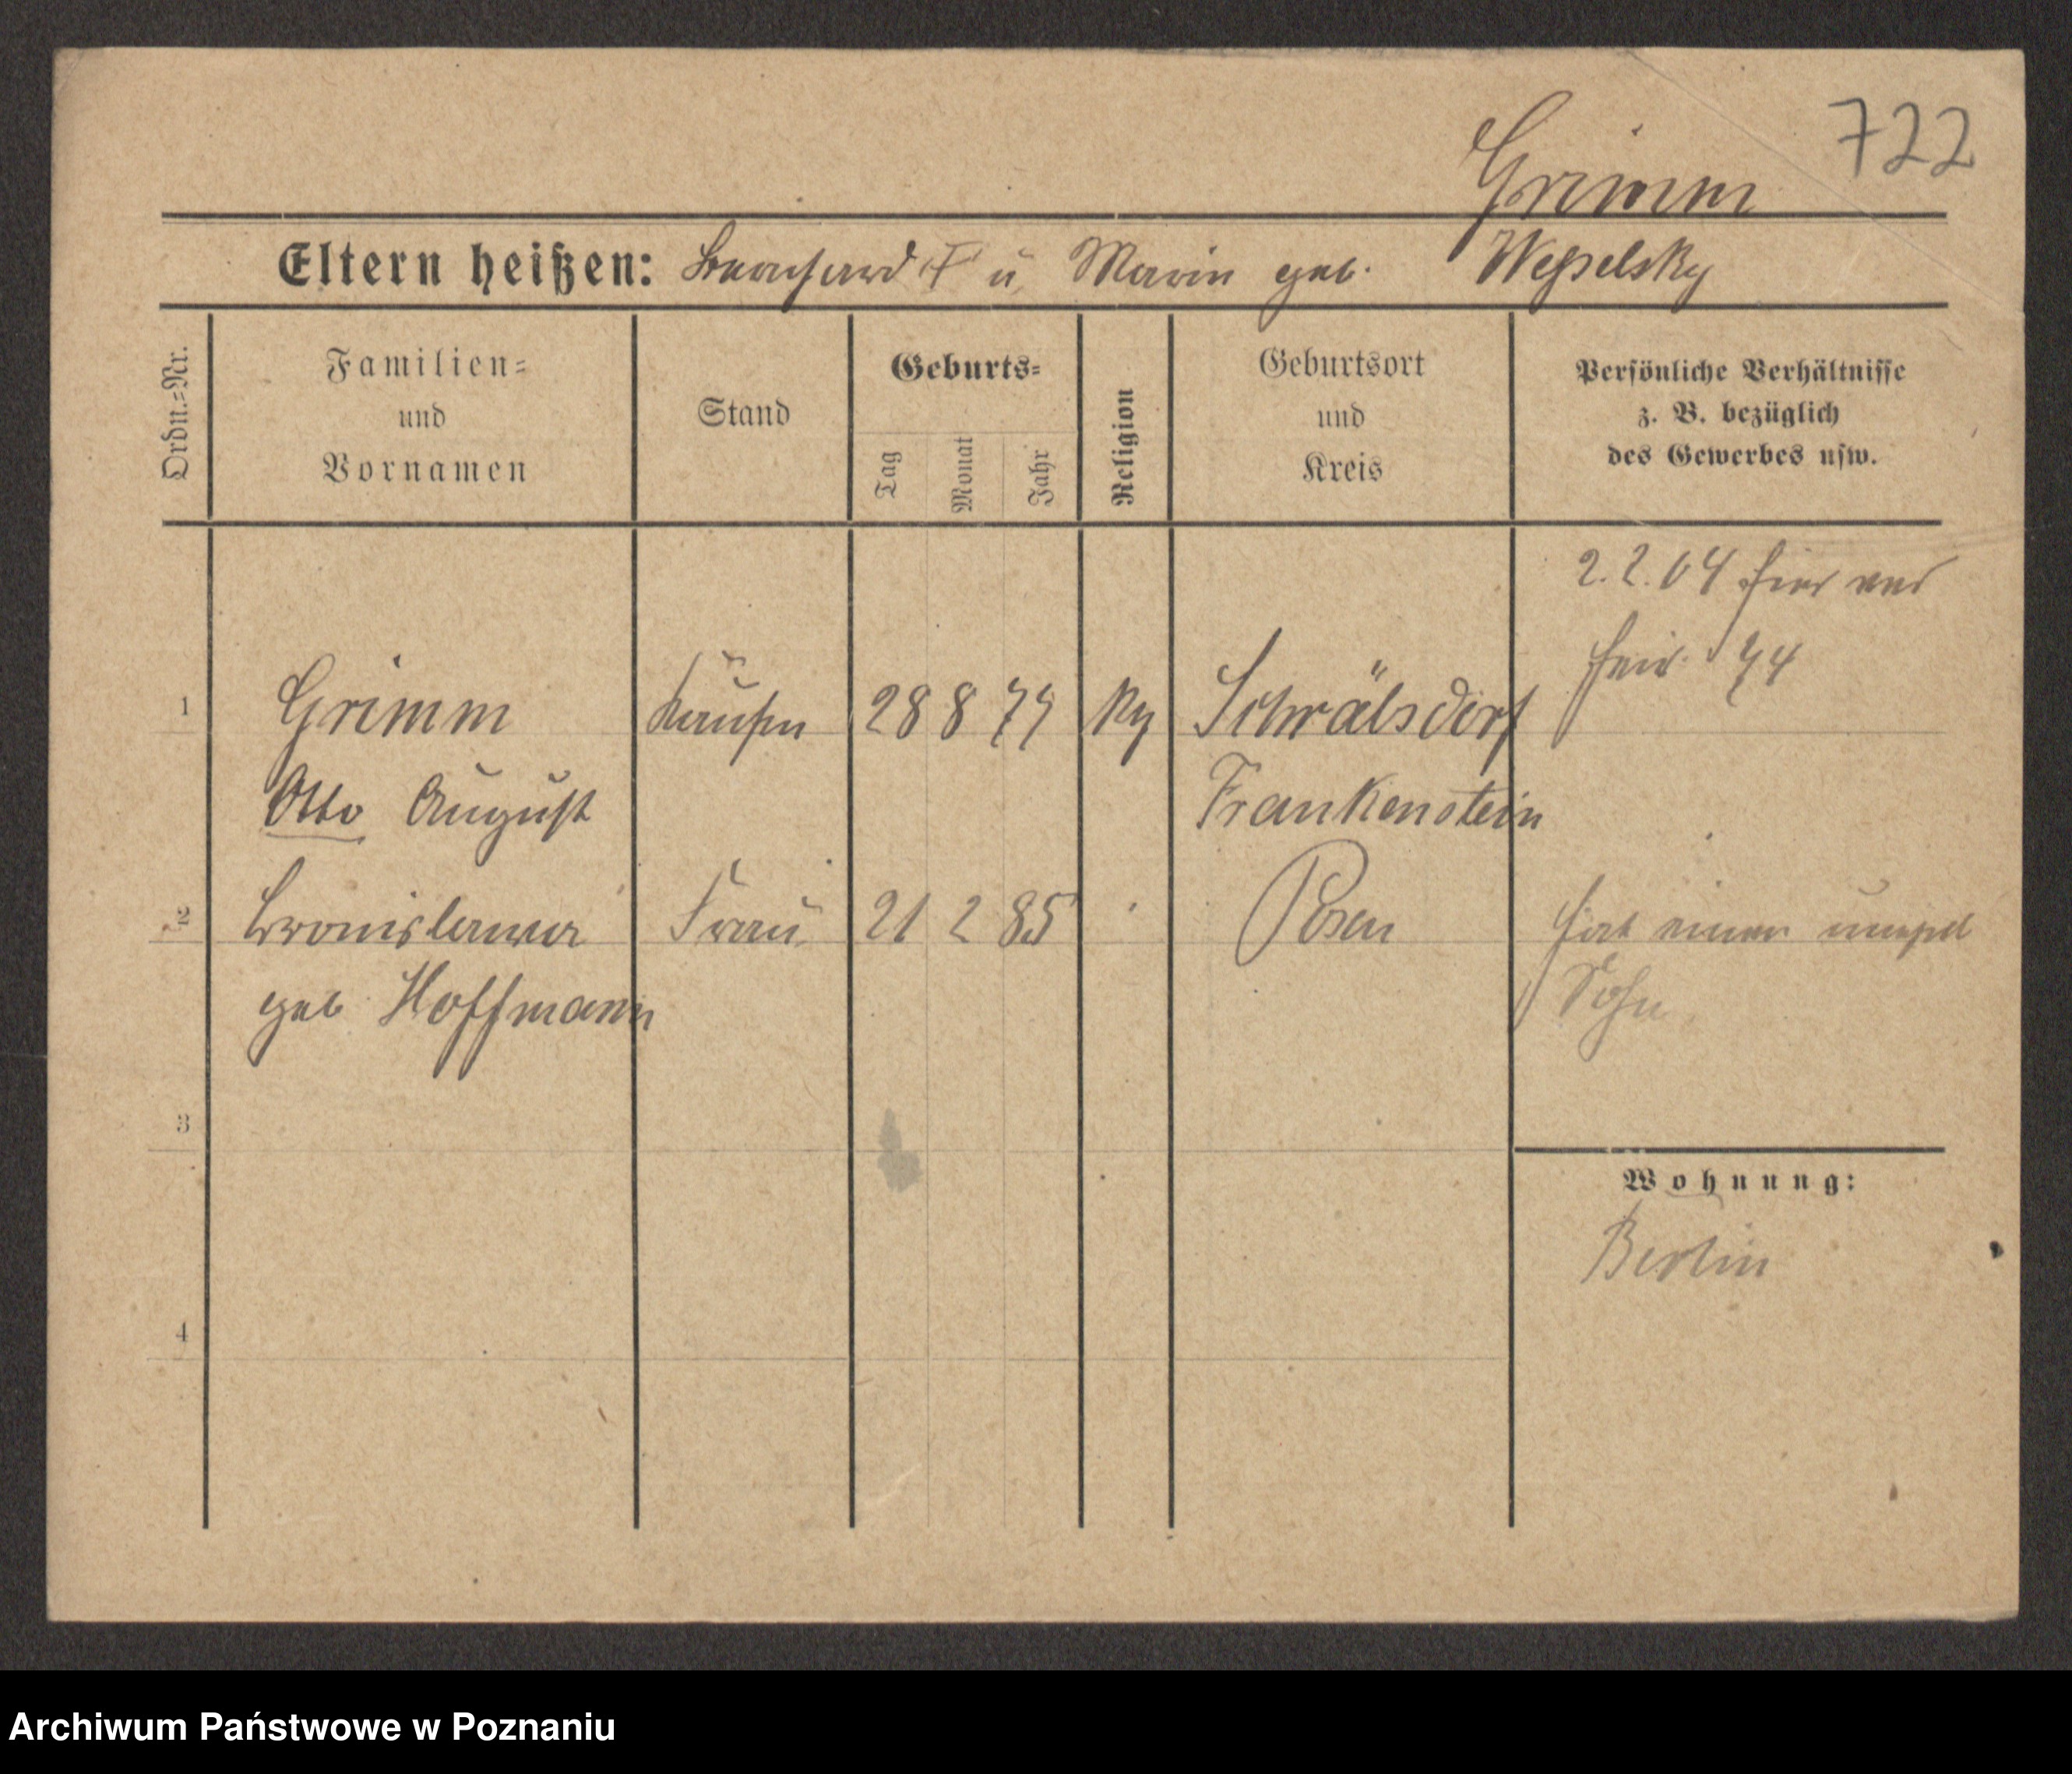 722
Grimm
Eltern heißen: Bernhard † u Marie geb. Wesselsky
Ordn.=Nr.
Familien=
und
Vornamen
Stand
Geburts=
Tag
Monat
Jahr
Religion
Geburtsort
und
Kreis
Persönliche Verhältnisse
z. B. bezüglich
des Gewerbes usw.
2.2.04 hier ver
heir.
1 Grimm Kaufm 28 8 79 Schrälsdorf
Otto August Frankenstein
2 Bronislawa Frau 21 2 85 Posen hat einen
geb Hoffmann Sohn
3
Wohnung:
Berlin
4
Archiwum Państwowe w Poznaniu